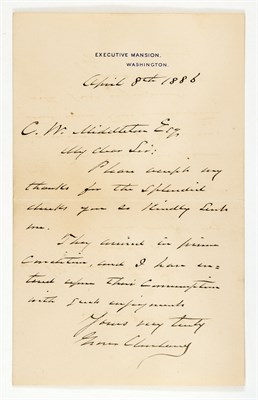 EXECUTIVE MANSION.
WASHINGTON.
April 8th 1886
C. W. Middleton Esq,
My dear Sir:
Please accept my
thanks for the splendid
ducks you so kindly sent
me.
They arrived in prime
condition, and I have en-
tered upon their consumption
with much enjoyment
Yours very truly
Grover Cleveland